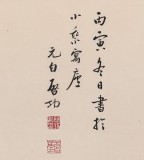 丙寅冬日書於
小乘寓廬
元白啟功